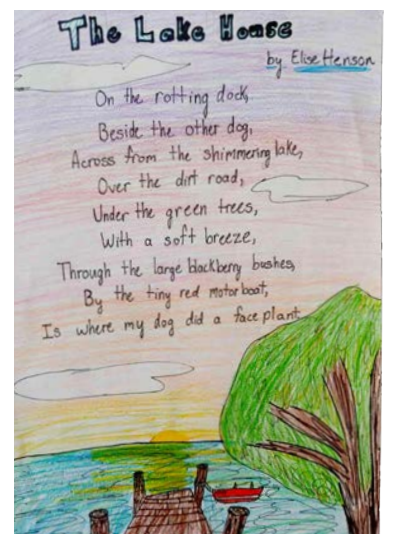 The Lake House
by Elise Henson
On the rotting dock,
Beside the other dog,
Across from the shimmering lake,
Over the dirt road,
Under the green trees,
With a soft breeze,
Through the large blackberry bushes,
By the tiny red motorboat,
Is where my dog did a face plant